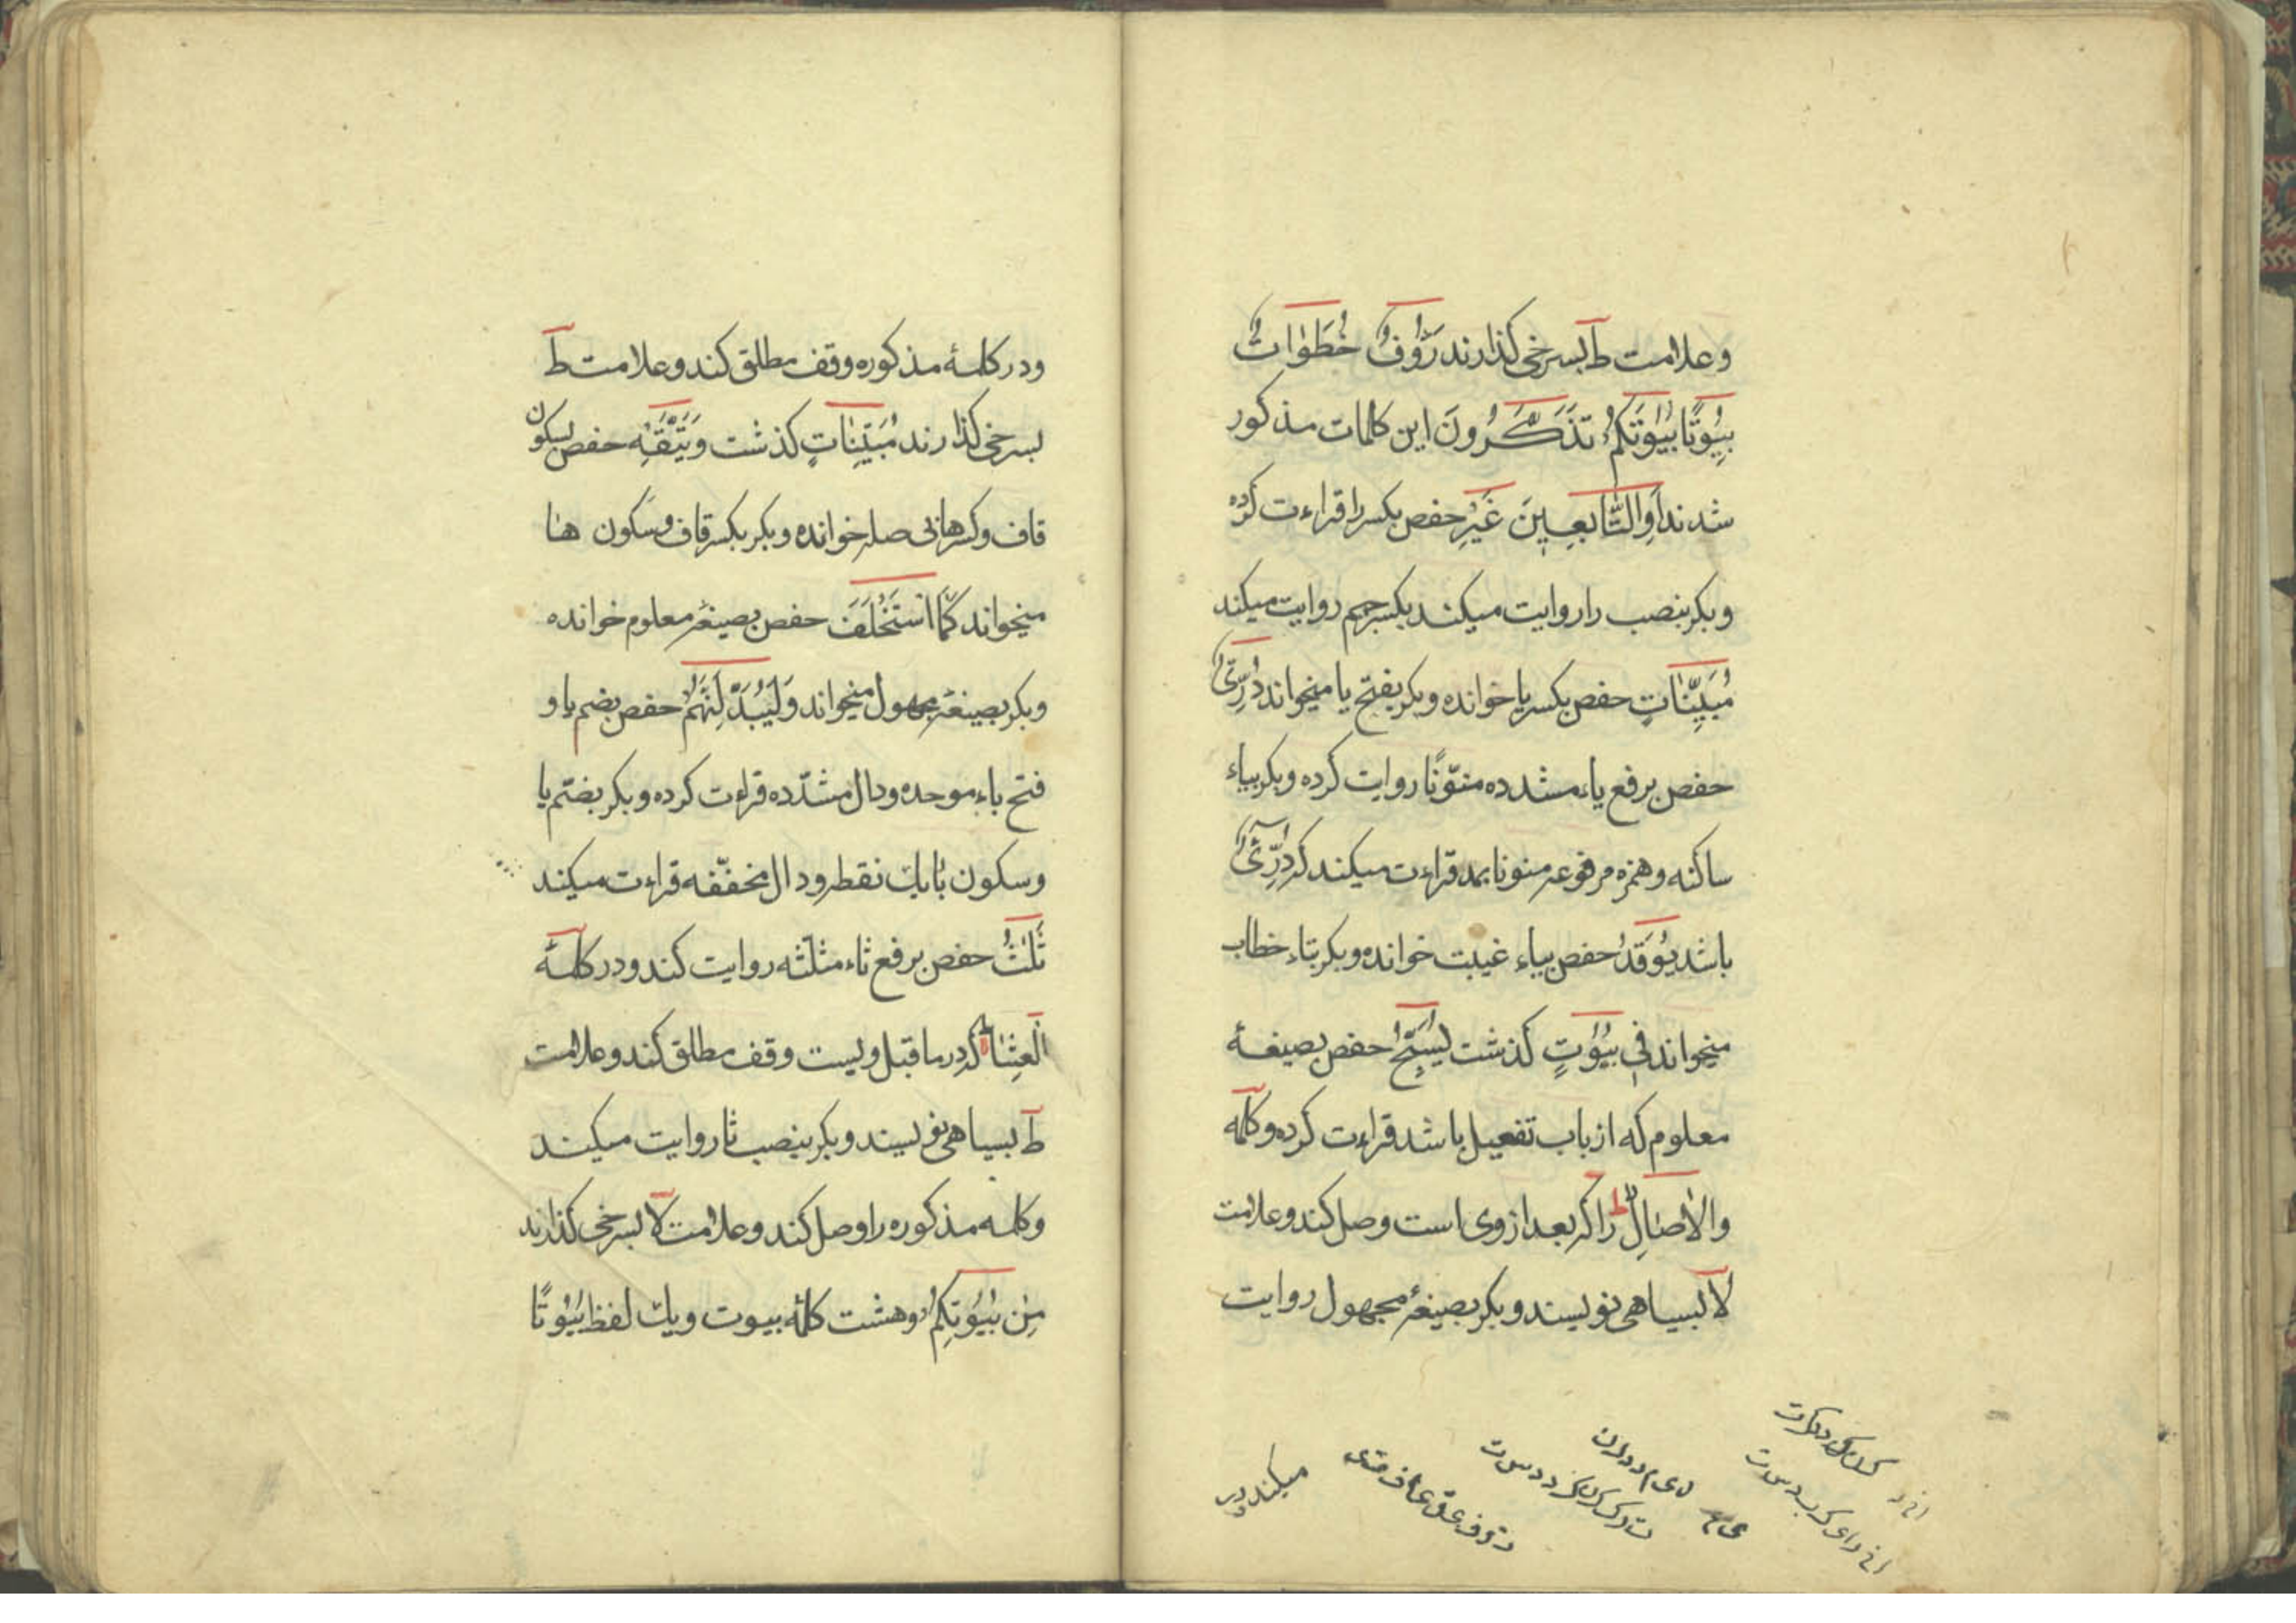 وعلامت ط بسرخی کذارند رَؤُفٌ خُطُوَاتِ
بِیُوتًا بُیُوتَکُمْ تَذَکَّرُونَ این کلمات مذکور
شدند اَوِالتَّابِعِینَ غَیْرِ حفص بکسر را قراءت کرده
وبکر بنصب را روایت میکند بکسر جیم روایت میکند
مُبَیِّنَاتٍ حفص بکسر یا خوانده وبکر بفتح یا میخواند دُرِّیٌّ
حفص برفع یاء مشدده منوّنًا روایت کرده وبکر بیاء
ساکنه وهمزه مرفوعه منونا بمد قراءت میکند که دُرِّیْءٌ
باشد یُوقَدُ حفص بیاء غیبت خوانده وبکر بتاء خطاب
میخواند فِی بُیُوتٍ کذشت یُسَبِّحُ حفص بصیغهٔ
معلوم که از باب تفعیل باشد قراءت کرده وکلمه
والْاٰصَالِ را که بعد از وی است وصل کند وعلامت
لا بسیاهی نویسند وبکر بصیغهٔ مجهول روایت
میکند ودر
ودر کلمهٔ مذکوره وقف مطلق کند وعلامت ط
بسرخی کذارند مُبَیِّنَاتٍ کذشت وَیَتَّقْهِ حفص بسکون
قاف وکسر ها بی صله خوانده وبکر بکسر قاف وسکون ها
میخواند کَمَا اسْتَخْلَفَ حفص بصیغهٔ معلوم خوانده
وبکر بصیغهٔ مجهول میخواند وَلَیُبَدِّلَنَّهُمْ حفص بضم یا و
فتح باء موحده ودال مشدّده قراءت کرده وبکر بضّم یا
وسکون با یك نقطه ودال مخفّفه قراءت میکند
ثَلٰثُ حفص برفع ثاء مثلّثه روایت کند ودر کلمهٔ
الْعِشَاءِ که در ما قبل ویست وقف مطلق کند وعلامت
ط بسیاهی نویسند وبکر بنصب ثا روایت میکند
وکلمه مذکوره را وصل کند وعلامت لا بسرخی کذارند
مِن بُیُوتِکُمْ وهشت کلمه بیوت ویك لفظ بُیُوتًا